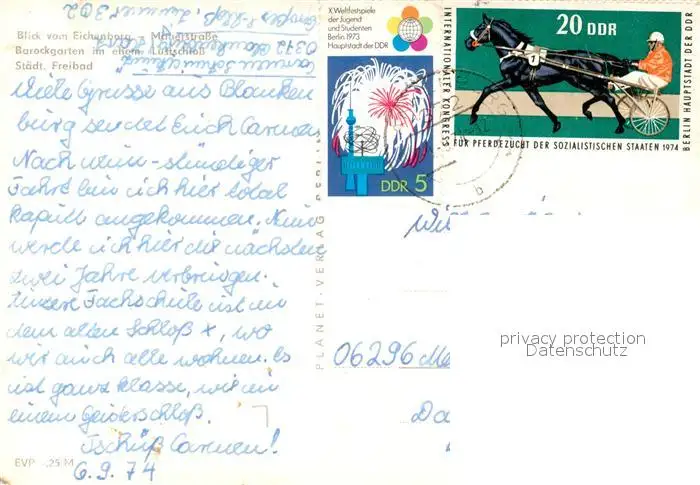 Blick vom Eichenberg Mauerstraße
Barockgarten im ehem. Lustschloß
Städt. Freibad
Viele Grüsse aus Blanken
burg sendet Euch Carmen
Nach neun-stündiger
Fahrt bin ich hier total
kaputt angekommen. Nun
werde ich hier die nächsten
zwei Jahre verbringen.
Unsere Fachschule ist in
dem alten Schloß x, wo
wir auch alle wohnen. Es
ist ganz klasse, wie in
einem Geisterschloß.
Tschüß Carmen!
6.9.74
EVP -.25 M
PLANET-VERLAG BERLIN
X. Weltfestspiele
der Jugend
und Studenten
Berlin 1973
Hauptstadt der DDR
DDR 5
INTERNATIONALER KONGRESS
20 DDR
1
FÜR PFERDEZUCHT DER SOZIALISTISCHEN STAATEN 1974
BERLIN HAUPTSTADT DER DDR
b
06296 Me
privacy protection
Datenschutz